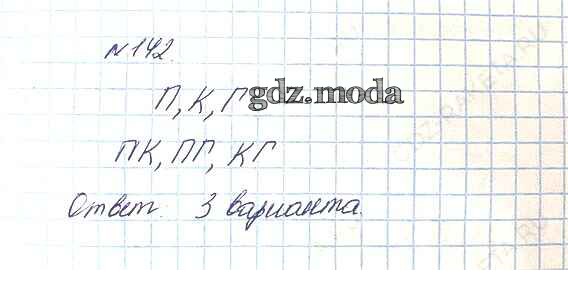 № 142.
П, К, Г gdz.moda
ПК, ПГ, КГ
Ответ: 3 варианта.